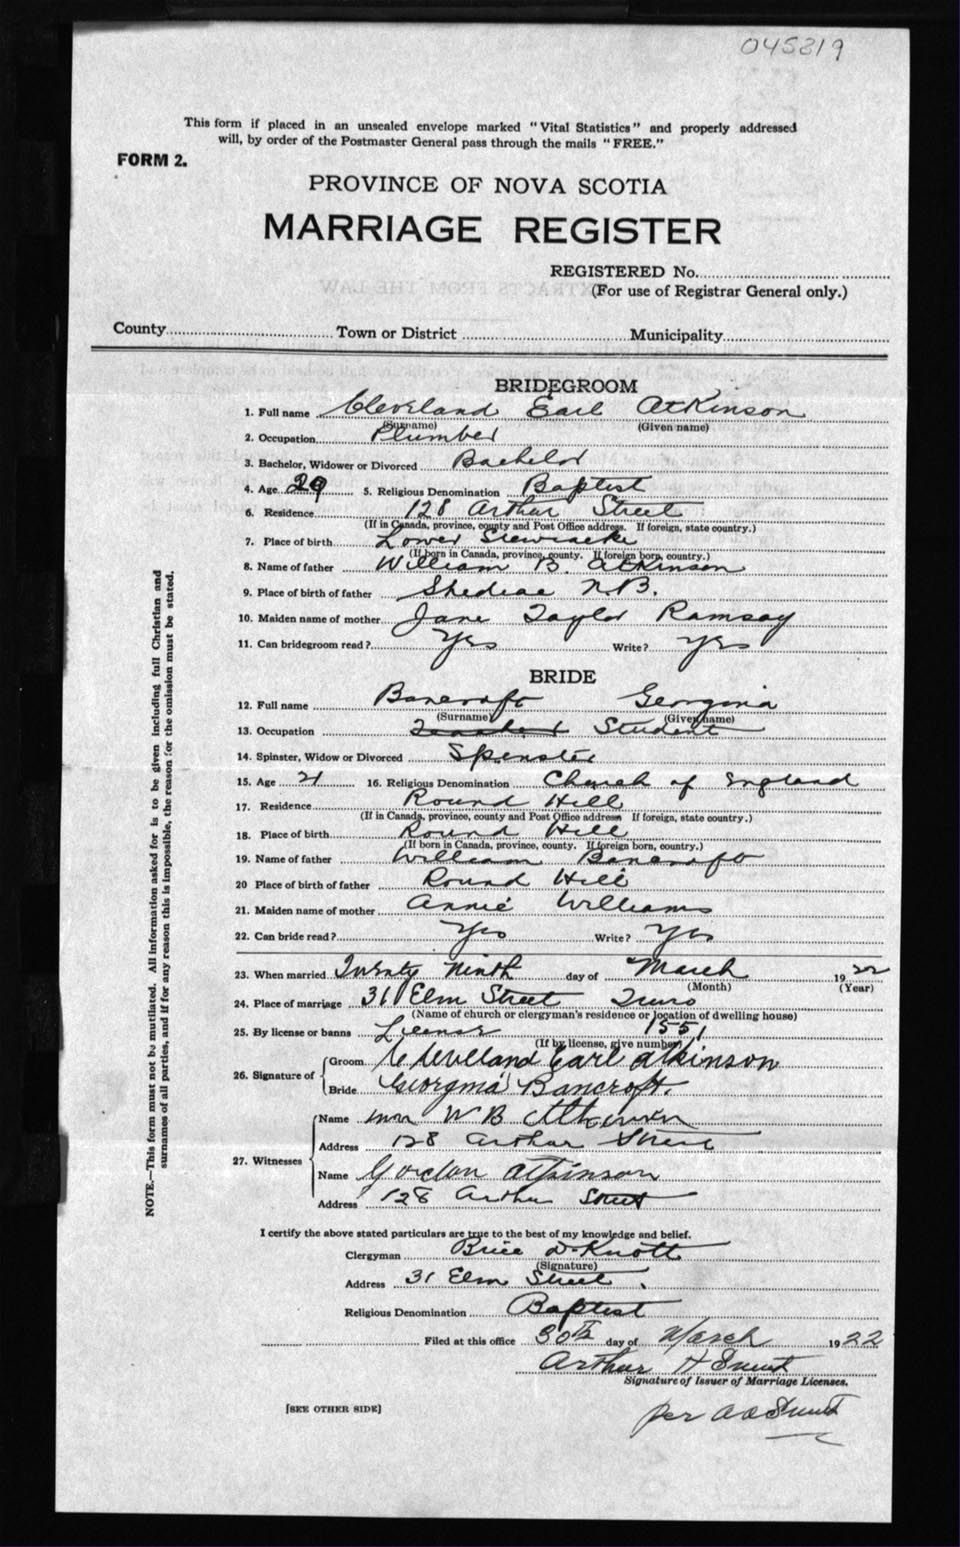 045819
This form if placed in an unsealed envelope marked "Vital Statistics" and properly addressed
will, by order of the Postmaster General pass through the mails "FREE."
FORM 2.
PROVINCE OF NOVA SCOTIA
MARRIAGE REGISTER
REGISTERED No.
(For use of Registrar General only.)
County Town or District Municipality
BRIDEGROOM
1. Full name Cleveland Earl Atkinson
(Surname) (Given name)
2. Occupation Plumber
3. Bachelor, Widower or Divorced Bachelor
4. Age 29 5. Religious Denomination Baptist
6. Residence 128 Arthur Street
(If in Canada, province, county and Post Office address. If foreign, state country.)
7. Place of birth Lower Stewiacke
(If born in Canada, province, county. If foreign born, country.)
8. Name of father William B. Atkinson
9. Place of birth of father Shediac N.B.
10. Maiden name of mother Jane Taylor Ramsay
11. Can bridegroom read? Yes Write? Yes
BRIDE
12. Full name Bancroft Georgina
(Surname) (Given name)
13. Occupation Teacher Student
14. Spinster, Widow or Divorced Spenster
15. Age 21 16. Religious Denomination Church of England
17. Residence Round Hill
(If in Canada, province, county and Post Office address If foreign, state country.)
18. Place of birth Round Hill
(If born in Canada, province, county. If foreign born, country.)
19. Name of father William Bancroft
20 Place of birth of father Round Hill
21. Maiden name of mother Annie Williams
22. Can bride read? Yes Write? Yes
23. When married Twenty Ninth day of March 1922
(Month) (Year)
24. Place of marriage 31 Elm Street Truro
(Name of church or clergyman's residence or location of dwelling house)
25. By license or banns License 1551
(If by license, give number)
26. Signature of Groom Cleveland Earl Atkinson
Bride Georgina Bancroft.
27. Witnesses Name W B Atkinson
Address 128 Arthur Street
Name Gordon Atkinson
Address 128 Arthur Street
I certify the above stated particulars are true to the best of my knowledge and belief.
Clergyman Brice D. Knott
(Signature)
Address 31 Elm Street.
Religious Denomination Baptist
Filed at this office 30th day of March 1922
Arthur H
Signature of Issuer of Marriage Licenses.
per
[SEE OTHER SIDE]
NOTE.—This form must not be mutilated. All information asked for is to be given including full Christian and
surnames of all parties, and if for any reason this is impossible, the reason for the omission must be stated.